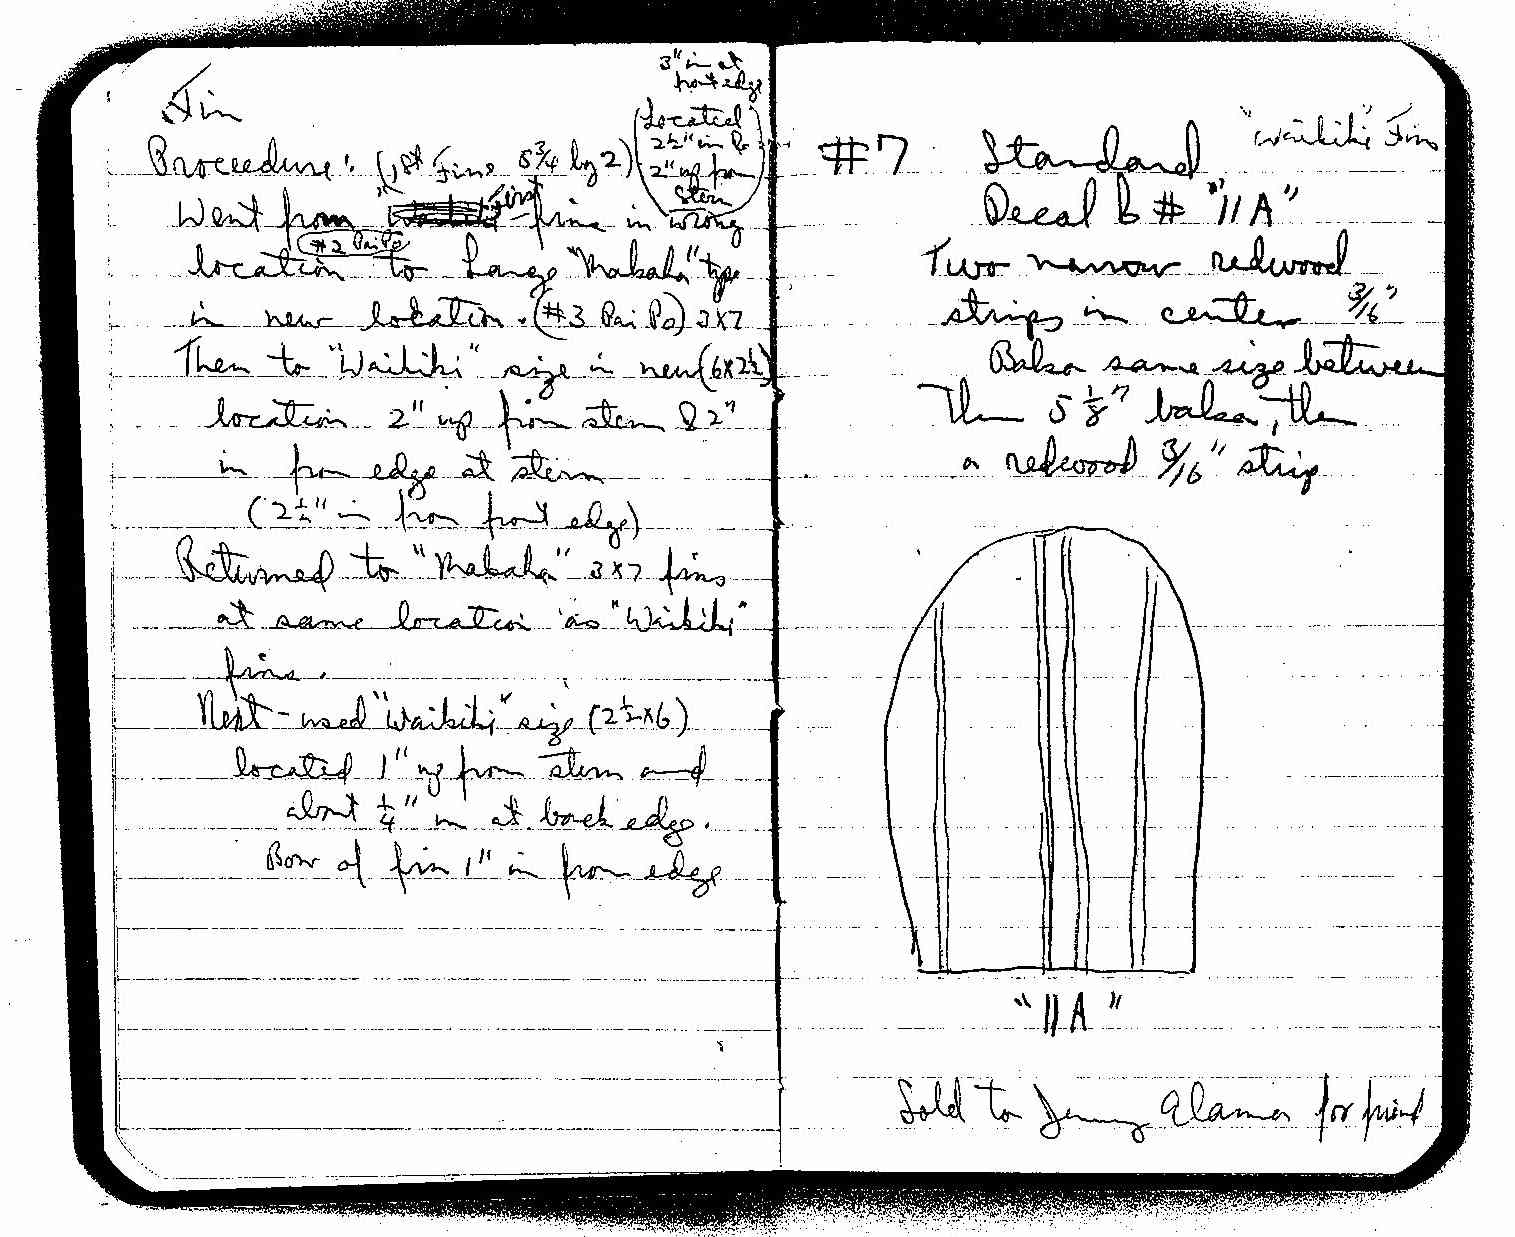 Fin
3" in at
front edge
Proceedure: (1st Fins 5 3/4 by 2)
(Located
2 1/2" in
2" up from
Stern)
Went from "First" fins in wrong
(#2 Pai Po)
location to Large "Makaha" type
in new location. (#3 Pai Po) 3x7
Then to "Waikiki" size in new (6x2 1/2)
location 2" up from stern & 2"
in from edge at stern
(2 1/2" in from front edge)
Returned to "Makaha" 3x7 fins
at same location as "Waikiki"
fins.
Next - used "Waikiki" size (2 1/2 x 6)
located 1" up from stern and
about 1/4" in at back edge.
Bow of fin 1" in from edge
"Waikiki" Fins
#7 Standard
Decal B # "11A"
Two narrow redwood
strips in center 3/16"
Balsa same size between
Then 5 1/8" balsa, then
a redwood 3/16" strip
"11A"
Sold to Jenny for friend